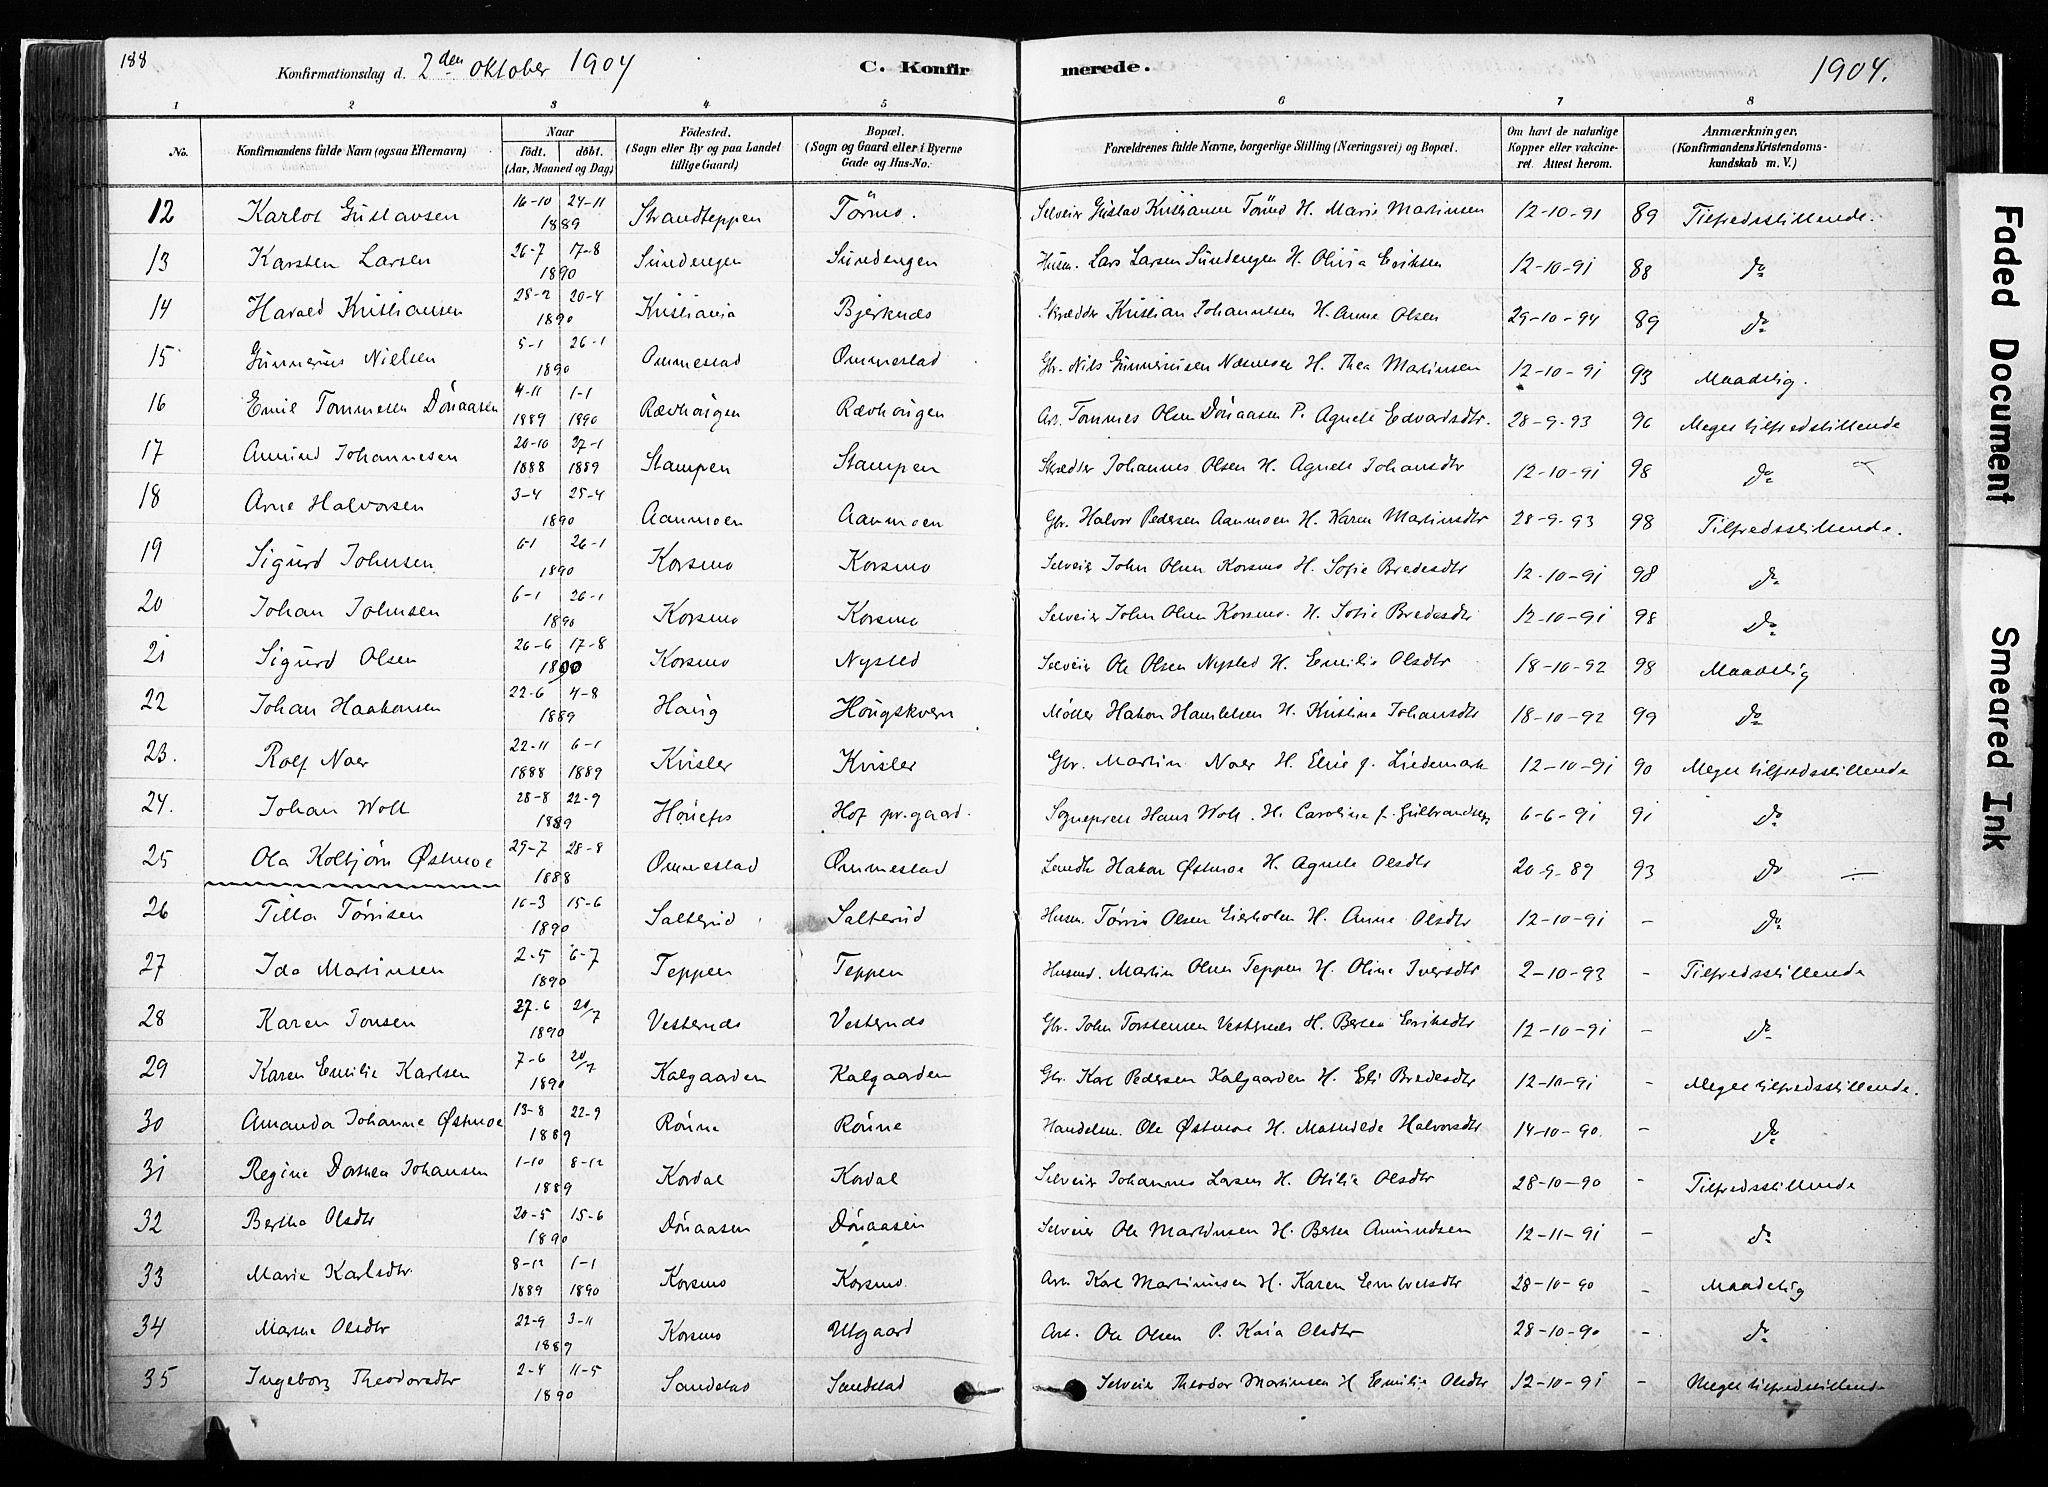 188
Konfirmationsdag d. 2den oktober 1904
C. Konfir merede.
1904.
1 2 3 4 5 6 7 8
No. Konfirmandens fulde Navn (ogsaa Efternavn) Naar født. døbt. (Aar, Maaned og Dag) Fødested. (Sogn eller By og paa Landet tillige Gaard) Bopæl. (Sogn og Gaard eller i Byerne Gade og Hus-No. Forældrenes fulde Navne, borgerlige Stilling (Næringsvei) og Bopæl. Om havt de naturlige Kopper eller vakcineret. Attest herom. Anmærkninger, (Konfirmandens Kristendomskundskab m. V.)
12 Karlot Gustavsen 16-10 24-11 1889 Strandteppen Törmo. Selveier Gustav Kristiansen H. Marie Martinsen 12-10-91 89 Tilfredsstillende.
13 Karsten Larsen 26-7 17-8 1890 Sundengen Sundengen Husm. Lars Larsen Sundengen H. Olivia Eriksen 12-10-91 88 do
14 Harald Kristiansen 28-2 20-4 1890 Kristiania Bjerknes Skrædder Kristian Johannesen H. Anne Olsen 29-10-94 89 do
15 Gunnerius Nielsen 5-1 26-1 1890 Ommestad Ommestad Gbr. Nils Gunneriusen H. Thea Martinsen 12-10-91 93 Maadelig.
16 Emil Tommesen Dönaasen 4-11 1-1 1889 1890 Rævhaugen Rævhaugen Arb. Tommes Olsen Dönaasen P. Agnete Edvardsdtr. 28-9-93 96 Meget tilfredsstillende
17 Amund Johannesen 20-10 27-1 1888 1889 Stampen Stampen Skrædder Johannes Olsen H. Agnete Johansdtr 12-10-91 98 do
18 Arne Halvorsen 3-4 25-4 1890 Aanmoen Aanmoen Gbr. Halvor Pedersen Aanmoen H. Karen Martinsdtr 28-9-93 98 Tilfredsstillende.
19 Sigurd Johnsen 6-1 26-1 1890 Korsmo Korsmo Selveier John Olsen Korsmo H. Sofie Bredesdtr 12-10-91 98 do
20 Johan Johnsen 6-1 26-1 1890 Korsmo Korsmo Selveier John Olsen Korsmo. H. Sofie Bredesdtr 12-10-91 98 do
21 Sigurd Olsen 26-6 17-8 1890 Korsmo Nysted Selveier Ole Olsen Nysted H. Emilie Olsdtr 18-10-92 98 Maadelig
22 Johan Haakonsen 22-6 4-8 1889 Haug Hougskvern Møller Hakon H. Kristina Johansdtr 18-10-92 99 do
23. Rolf Noer 22-11 6-1 1888 1889 Kvisler Kvisler Gbr. Martin Noer H. Elise f. Lindemark 12-10-91 90 Meget tilfredsstillende
24. Johan Woll 28-8 22-9 1889 Hønefos Hof pr.gaard. Sognepræst Hans Woll. H. Caroline f. Gulbrandsen 6-6-91 91 do
25 Ola Kolbjørn Østmoe 29-7 28-8 1888 Ommestad Ommestad Landh. Hakon Østmoe H. Agnete Olsdtr 20-9-89 93 do
26 Tilla Tørrisen 16-3 15-6 1890 Salterud Salterud Husm. Tørris Olsen H. Anne Olsdtr 12-10-91 - do
27 Ida Martinsen 2-5 6-7 1890 Teppen Teppen Husmd. Martin Olsen Teppen H. Oline Iversdtr 2-10-93 - Tilfredsstillende
28 Karen Jonsen 27-6 20/7 1890 Vesternes Vesternes Gbr. John Torstensen Vesternes H. Berte Eriksdtr 12-10-91 - do
29 Karen Emilie Karlsen 7-6 20/7 1890 Kalgaarden Kalgaarden Gbr. Karl Pedersen Kalgaarden H. Eli Bredesdtr 12-10-91 - Meget tilfredsstillende.
30 Amanda Johanne Østmoe 13-8 22-9 1889 Rønne Rønne Handelsm. Ole Østmoe H. Mathilde Halvorsdtr 14-10-90. - do
31 Regine Dorthea Johansen 1-10 8-12 1889 Kordal Kordal Selveier Johannes Larsen H. Otilie Olsdtr 28-10-90 - Tilfredsstillende
32 Bertha Olsdtr 20-5 15-6 1890 Dönaasen Dönaasen Selveier Ole Martinsen H. Berte Amundsen 12-11-91 - do
33 Marie Karlsdtr 8-12 1-1 1889 1890 Korsmo Korsmo. Arb. Karl Martinusen H. Karen Embretsdtr 28-10-90 - Maadelig
34 Marthe Olsdtr 22-9 3-11 1889 Korsmo Utgaard Arb. Ole Olsen P. Kaia Olsdtr 28-10-90 - do
35 Ingeborg Theodorsdtr 2-4 11-5 1890 Sandstad Sandstad Selveier Theodor Martinsen H Emilie Olsdtr 12-10-91 - Meget tilfredsstillende
Faded Document
Smeared Ink